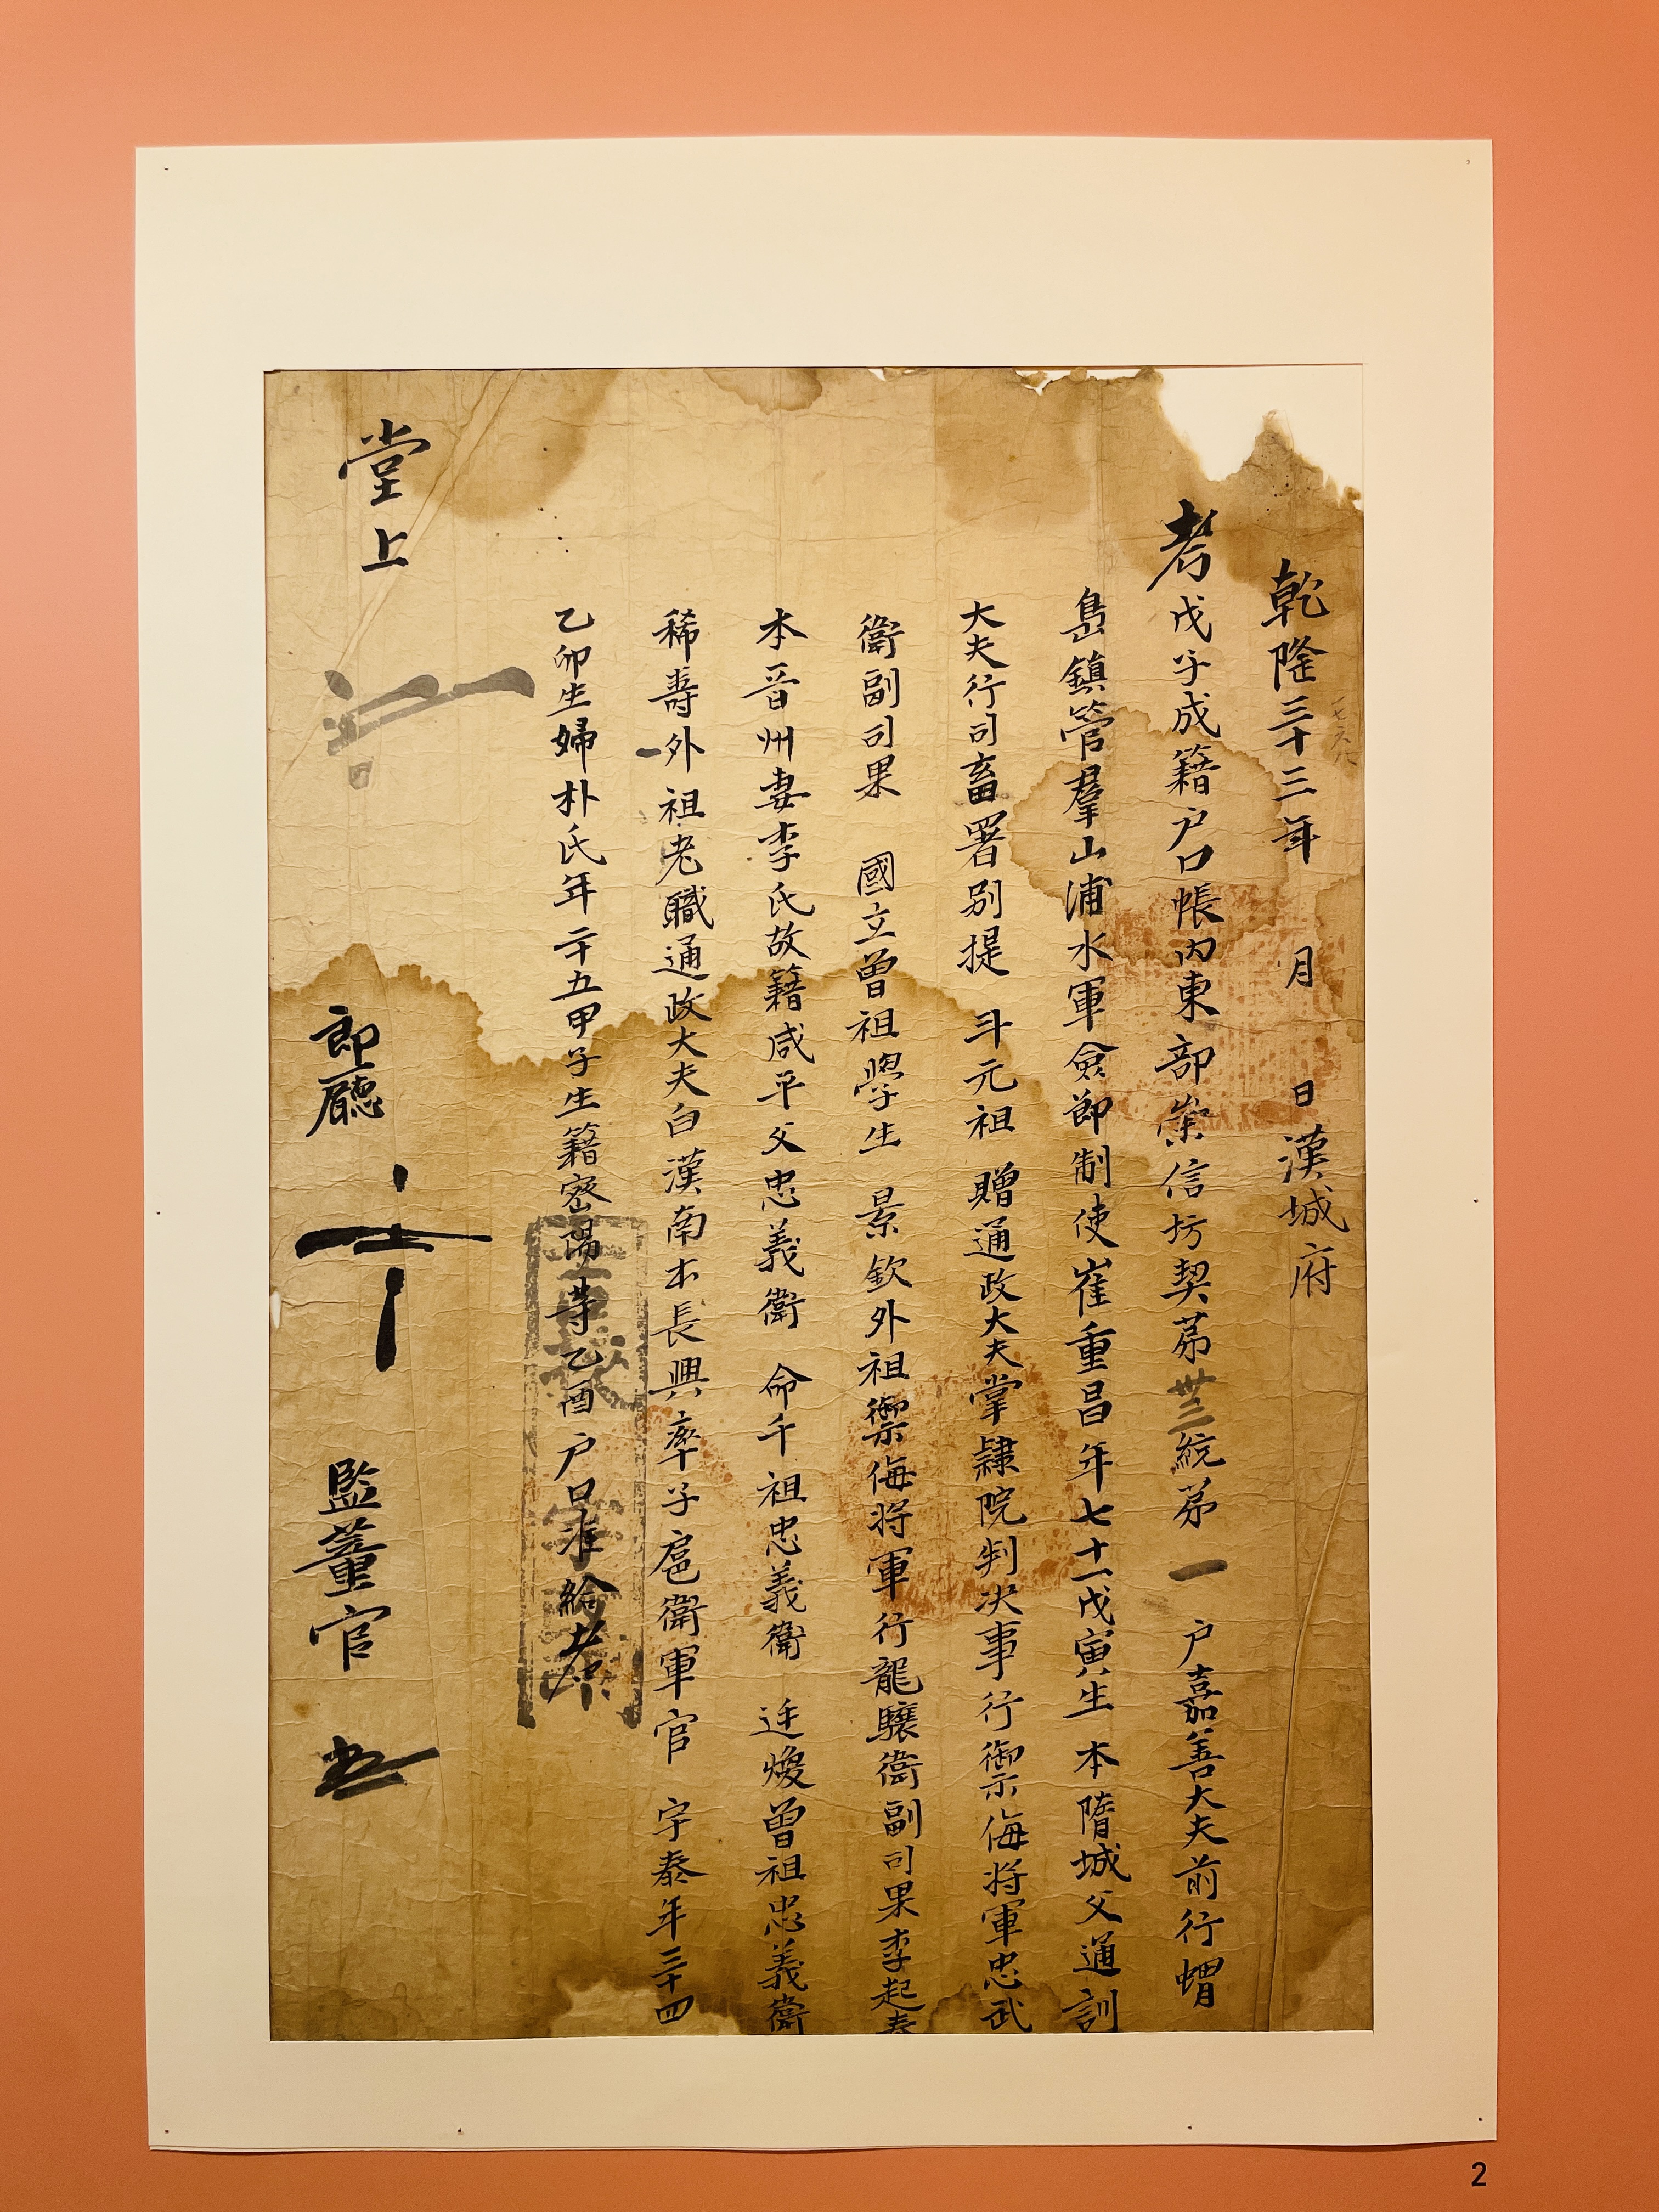 乾隆三十三年 月 日漢城府
考戊子成籍户口帳內東部崇信坊契苐卅三統苐一户嘉善大夫前行蝟
島鎮管羣山浦水軍僉節制使崔重昌年七十一戊寅生 本隋城父通訓
大夫行司畜署别提 斗元祖 贈通政大夫掌隷院判决事行禦侮將軍忠武
衛副司果 國立曾祖學生 景欽外祖禦侮將軍行龍驤衛副司果李起春
本晉州妻李氏故籍咸平父忠義衛 命千祖忠義衛 廷煥曾祖忠義衛
稀壽外祖老職通政大夫白漢南本長興率子扈衛軍官 宇泰年三十四
乙卯生婦朴氏年二十五甲子生籍密陽等乙酉户口准給者
堂上
郎廳
監董官
2